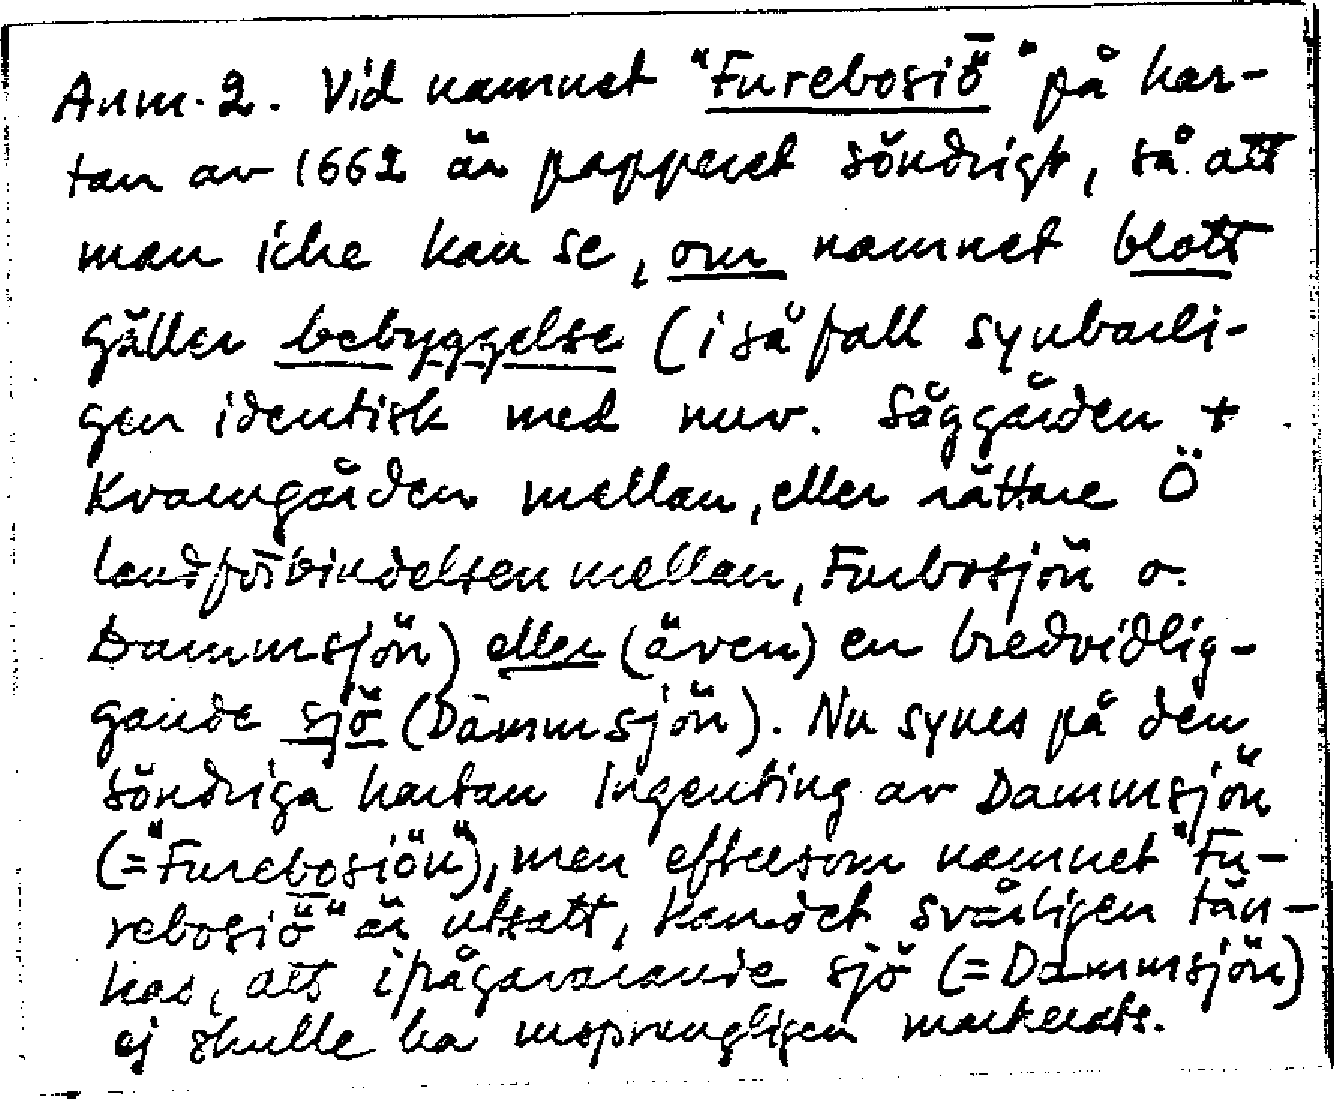 Anm. 2. Vid namnet "Furebosiȫ" på kar-
tan av 1662 är papperet söndrigt, så att
man icke kan se, om namnet blott
gäller bebyggelse (i så fall synbarli-
gen identisk med nuv. Såggården +
Kvarngården mellan, eller rättare Ö
landförbindelsen mellan, Furbosjön o.
Dammsjön) eller (även) en bredvidlig-
gande sjö (Dammsjön). Nu synes på den
söndriga kartan ingenting av Dammsjön
(="Furebosiön"), men eftersom namnet "Fu-
rebosiȫ" är utsatt, kan det svårligen tän-
kas, att ifrågavarande sjö (=Dammsjön)
ej skulle ha ursprungligen markerats.